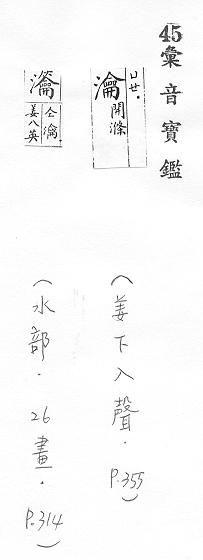 45彙音寶鑑
廿.
瀹 開滌
(姜下入聲. P.355)
仝瀹
姜八英
(水部. 26畫. P.314)